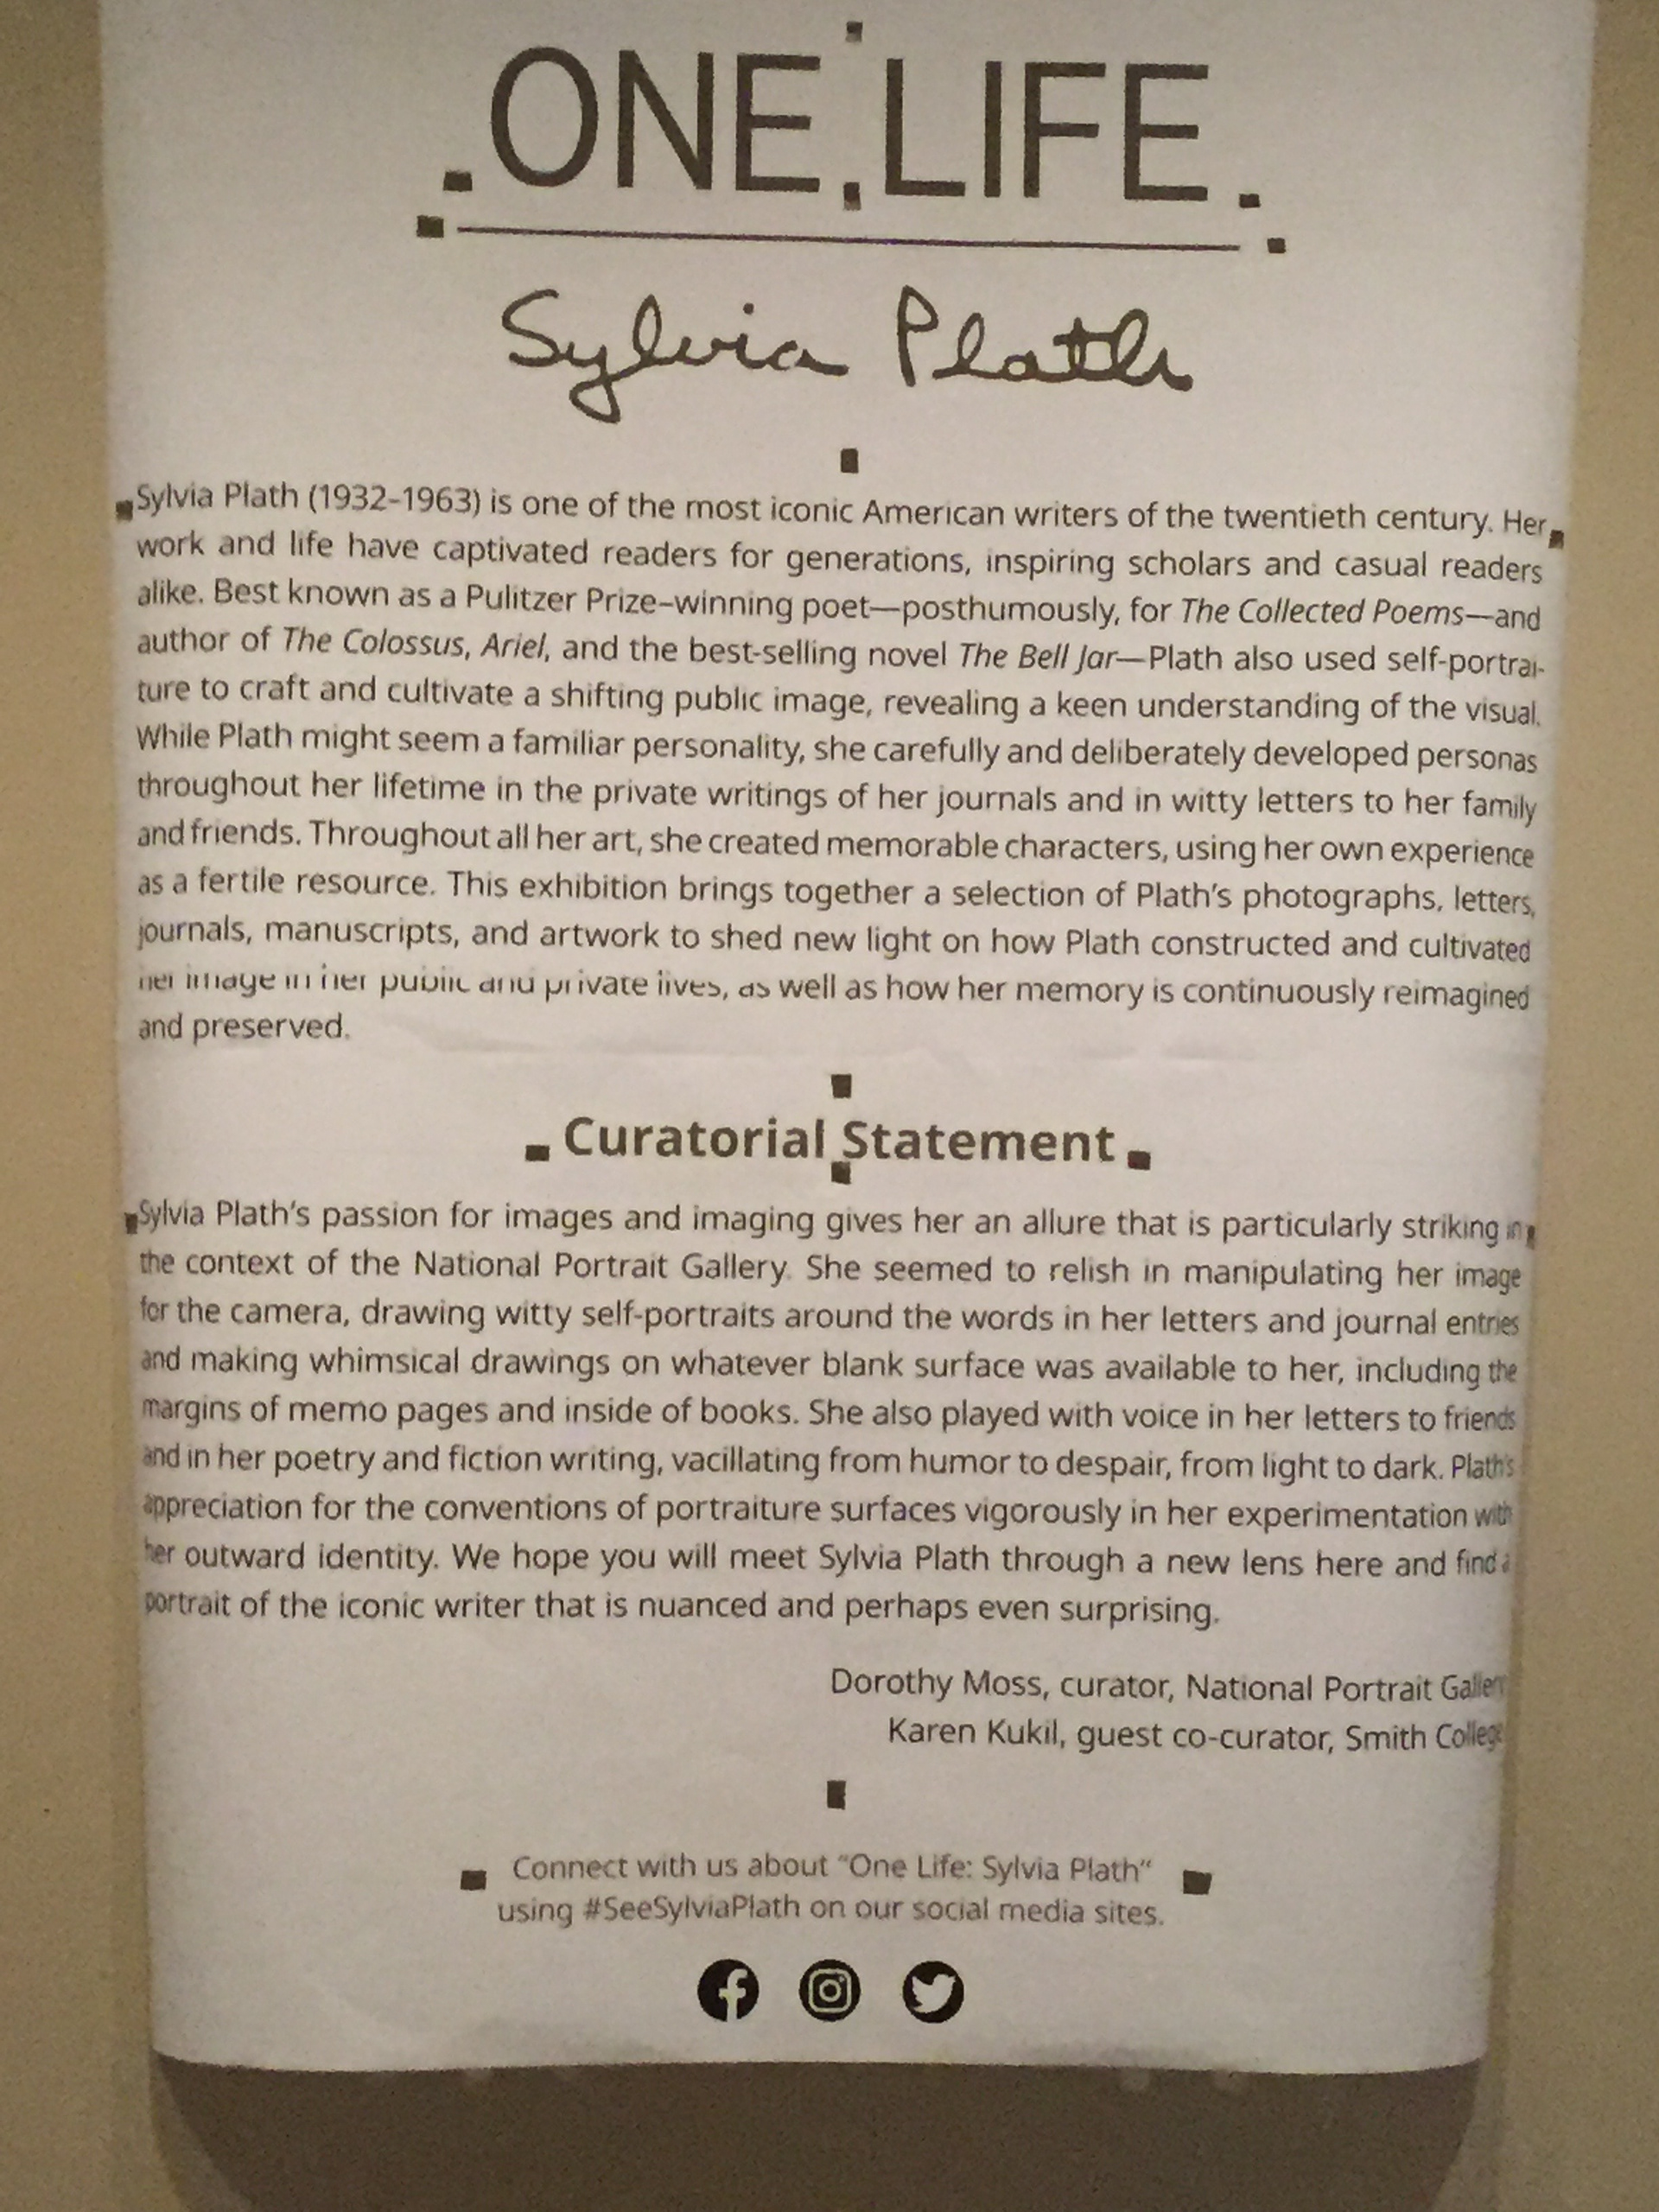 ONE LIFE
Sylvia Plath
Sylvia Plath (1932–1963) is one of the most iconic American writers of the twentieth century. Her
work and life have captivated readers for generations, inspiring scholars and casual readers
alike. Best known as a Pulitzer Prize–winning poet—posthumously, for The Collected Poems—and
author of The Colossus, Ariel, and the best-selling novel The Bell Jar—Plath also used self-portrai-
ture to craft and cultivate a shifting public image, revealing a keen understanding of the visual.
While Plath might seem a familiar personality, she carefully and deliberately developed personas
throughout her lifetime in the private writings of her journals and in witty letters to her family
and friends. Throughout all her art, she created memorable characters, using her own experience
as a fertile resource. This exhibition brings together a selection of Plath's photographs, letters,
journals, manuscripts, and artwork to shed new light on how Plath constructed and cultivated
her image in her public and private lives, as well as how her memory is continuously reimagined
and preserved.
Curatorial Statement
Sylvia Plath's passion for images and imaging gives her an allure that is particularly striking in
the context of the National Portrait Gallery. She seemed to relish in manipulating her image
for the camera, drawing witty self-portraits around the words in her letters and journal entries
and making whimsical drawings on whatever blank surface was available to her, including the
margins of memo pages and inside of books. She also played with voice in her letters to friends
and in her poetry and fiction writing, vacillating from humor to despair, from light to dark. Plath's
appreciation for the conventions of portraiture surfaces vigorously in her experimentation with
her outward identity. We hope you will meet Sylvia Plath through a new lens here and find a
portrait of the iconic writer that is nuanced and perhaps even surprising.
Dorothy Moss, curator, National Portrait Gallery
Karen Kukil, guest co-curator, Smith College
Connect with us about "One Life: Sylvia Plath"
using #SeeSylviaPlath on our social media sites.